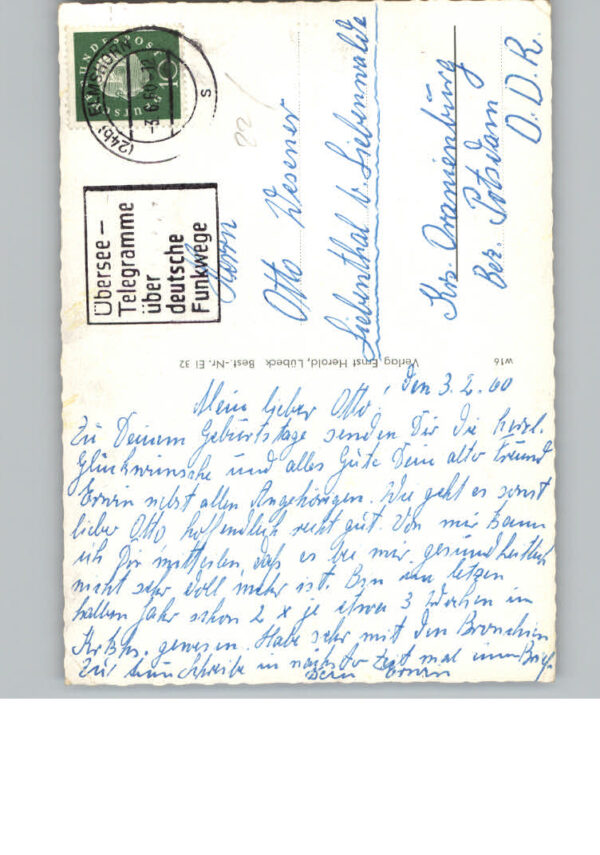 DEUTSCHE BUNDESPOST
10
(24b) ELMSHORN
-3.6.60-
s
Übersee-
Telegramme
über
deutsche
Funkwege
22
Herrn
Otto Wesener
Liebenthal b. Liebenwalde
Krs. Oranienburg
Bez. Potsdam
D.D.R.
Verlag Ernst Herold, Lübeck Best.-Nr. El 32
w16
den 3.2.60
Mein lieber Otto!
Zu Deinem Geburtstage senden Dir die herzl.
Glückwünsche und alles Gute Dein alter Freund
Erwin nebst allen Angehörigen. Wie geht es sonst
lieber Otto hoffendlich recht gut. Von mir kann
ich Dir mitteilen, daß es bei mir gesundheitlich
nicht sehr doll mehr ist. Bin im letzen
halben Jahr schon 2 x je etwa 3 Wochen im
Krkhs. gewesen. Habe sehr mit den Bronchien
Zu tun schreibe in nächster Zeit mal einen Brief.
Dein Erwin